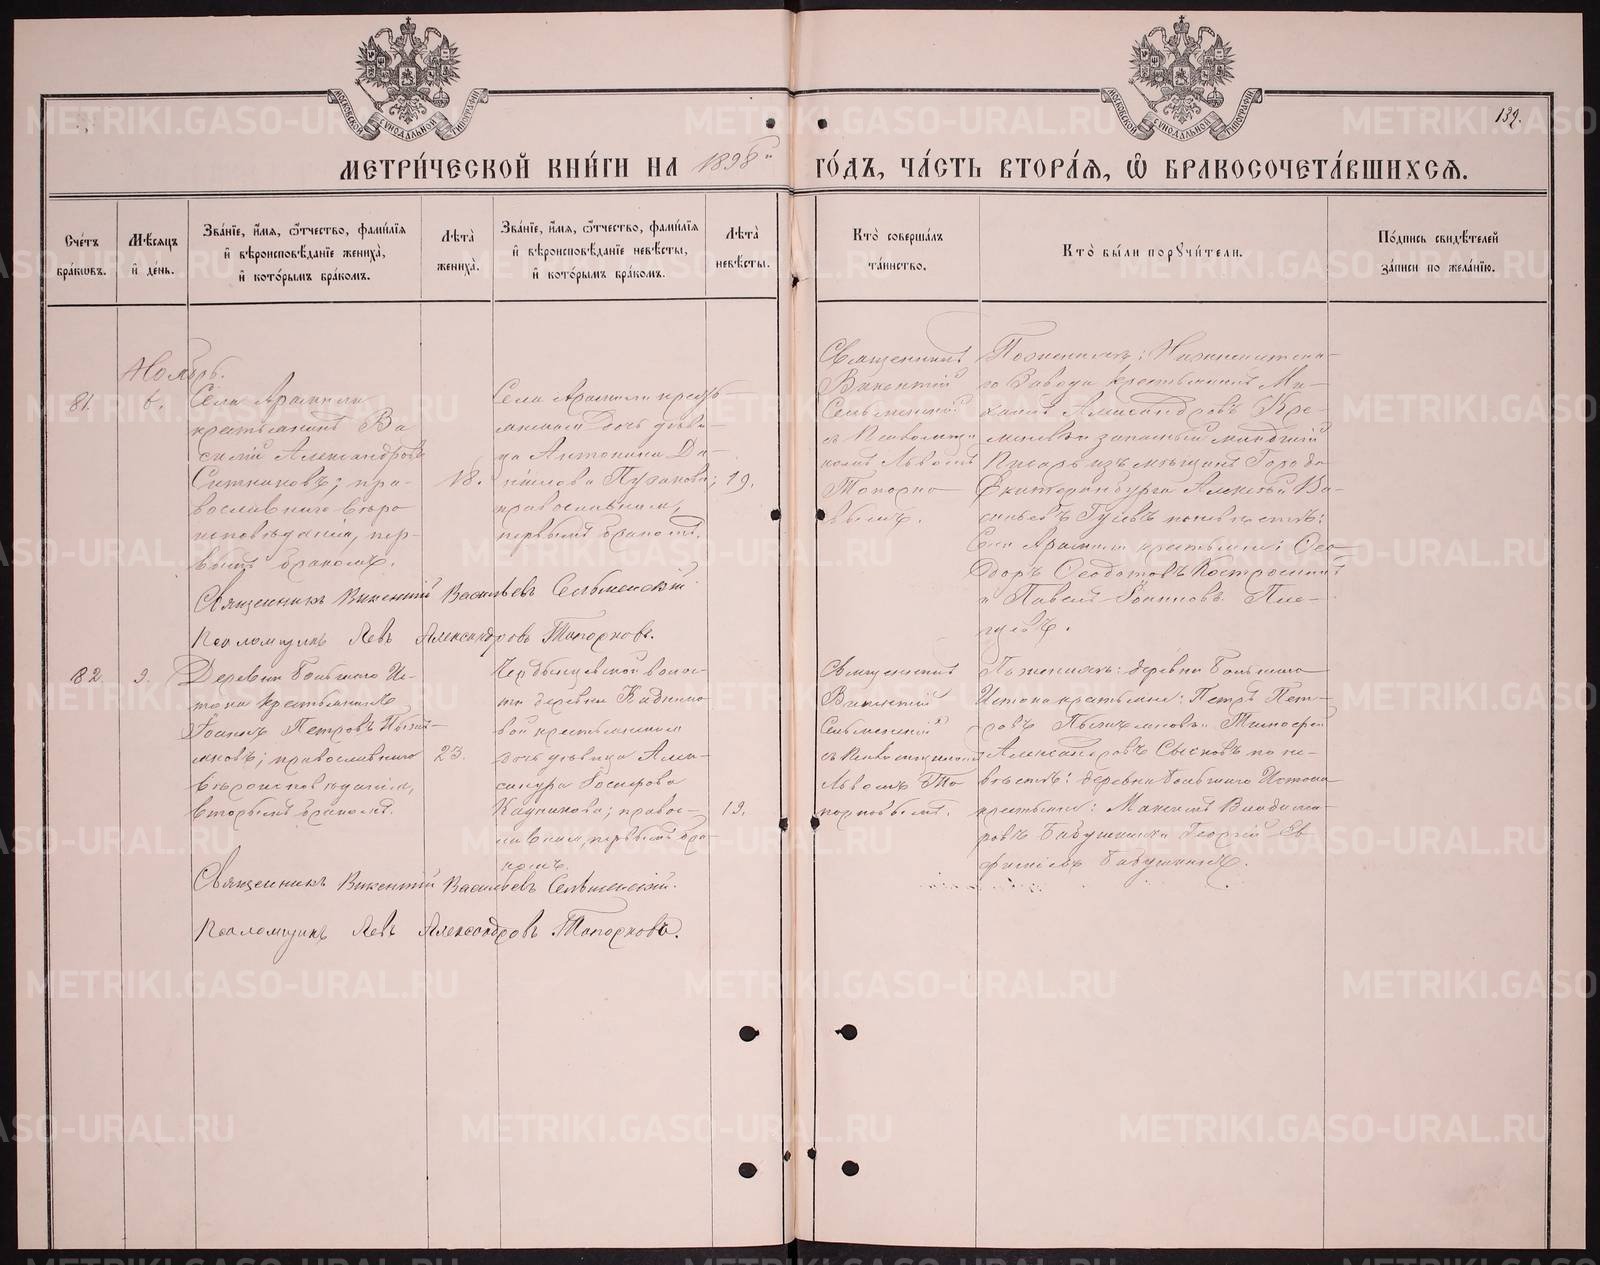 МОСКОВСКОЙ СѴНОДАЛЬНОЙ ТИПОГРАФІИ
МОСКОВСКОЙ СѴНОДАЛЬНОЙ ТИПОГРАФІИ
139.
МЕТРИ́ЧЕСКОЙ КНИ́ГИ НА 1898й ГО́ДЪ, ЧА́СТЬ ВТОРА́Я, Ѡ БРАКОСОЧЕТА́ВШИХСЯ.
Сче́тъ
бра́ковъ.
М҃ѣсяцъ
и҆ де́нь.
Зва́нїе, и҆́мя, ѻ҆́тчество, фами́лїя
и҆ вѣроисповѣ́данїе жениха̀,
и҆ кото́рымъ бра́комъ.
Лѣ́та
жениха̀.
Зва́нїе, и҆́мя, ѻ҆́тчество, фами́лїя
и҆ вѣроисповѣ́данїе невѣ́сты,
и҆ кото́рымъ бра́комъ.
Лѣ́та
невѣ́сты.
Кто̀ соверша́лъ
та́инство.
Кто̀ бы́ли порꙋчи́тели.
По́дпись свидѣ́телей
за́писи по жела́нїю.
Ноябрь.
81.
6.
Села Арамиля
крестьянинъ Ва
силій Александровъ
Ситниковъ; пра-
вославнаго вѣро
исповѣданія, пер-
вымъ бракомъ.
18.
Села Арамили кресть-
янская дочь дѣви-
ца Антонина Да-
нилова Пузанова;
православная,
первымъ бракомъ.
19.
Священникъ
Викентій
Сельменскій
съ Псаломщи
комъ Львомъ
Топорко
вымъ.
По женихѣ:
го Завода крестьянинъ Ми-
хаилъ Александровъ Кре-
запасный младшій
Писарь изъ мѣщанъ Города
Екатеринбурга Алексѣй Ва-
сильевъ Гусевъ по невѣстѣ:
Села Арамили крестьяне: Ѳео-
доръ Ѳеодотовъ Костромин
и Павелъ
Священникъ Викентій Васильевъ Сельменскій
Псаломщикъ Левъ Александровъ Топорковъ.
82.
9.
Деревни Большаго Ис-
тока крестьянинъ
Іоаннъ Петровъ Пьян-
ковъ; православнаго
вѣроисповѣданія,
вторымъ бракомъ.
23.
волос-
ти деревни Кадкико-
вой крестьянская
дочь дѣвица Алек-
сандра Іосифова
Кадникова; правос-
лавная, первымъ бра-
комъ.
19.
Священникъ
Викентій
Сельменскій
съ Псаломщикомъ
Львомъ То
порковымъ.
По женихѣ: деревни Большаго
Истока крестьяне: Петръ Пет-
ровъ и Тимофей
Александровъ по не-
вѣстѣ: деревни Большаго Истока
крестьяне: Максимъ Владими-
ровъ Бабушкинъ и Георгій Ев
фимовъ Бабушкинъ.
Священникъ Викентій Васильевъ Сельменскій.
Псаломщикъ Левъ Александровъ Топорковъ.
METRIKI.GASO-URAL.RU